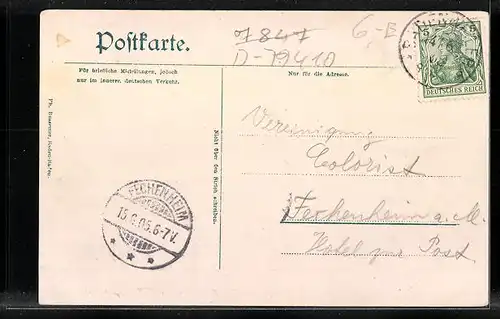 Postkarte.
7847
D-79410
6,-B
Für briefliche Mitteilungen, jedoch
nur im inneren deutschen Verkehr.
Nur für die Adresse.
DEUTSCHES REICH
Nicht über den Strich schreiben.
Vereinigung
Colorist
Fechenheim a. M.
Hotel zur Post
FECHENHEIM
13.8.05.6-7V.